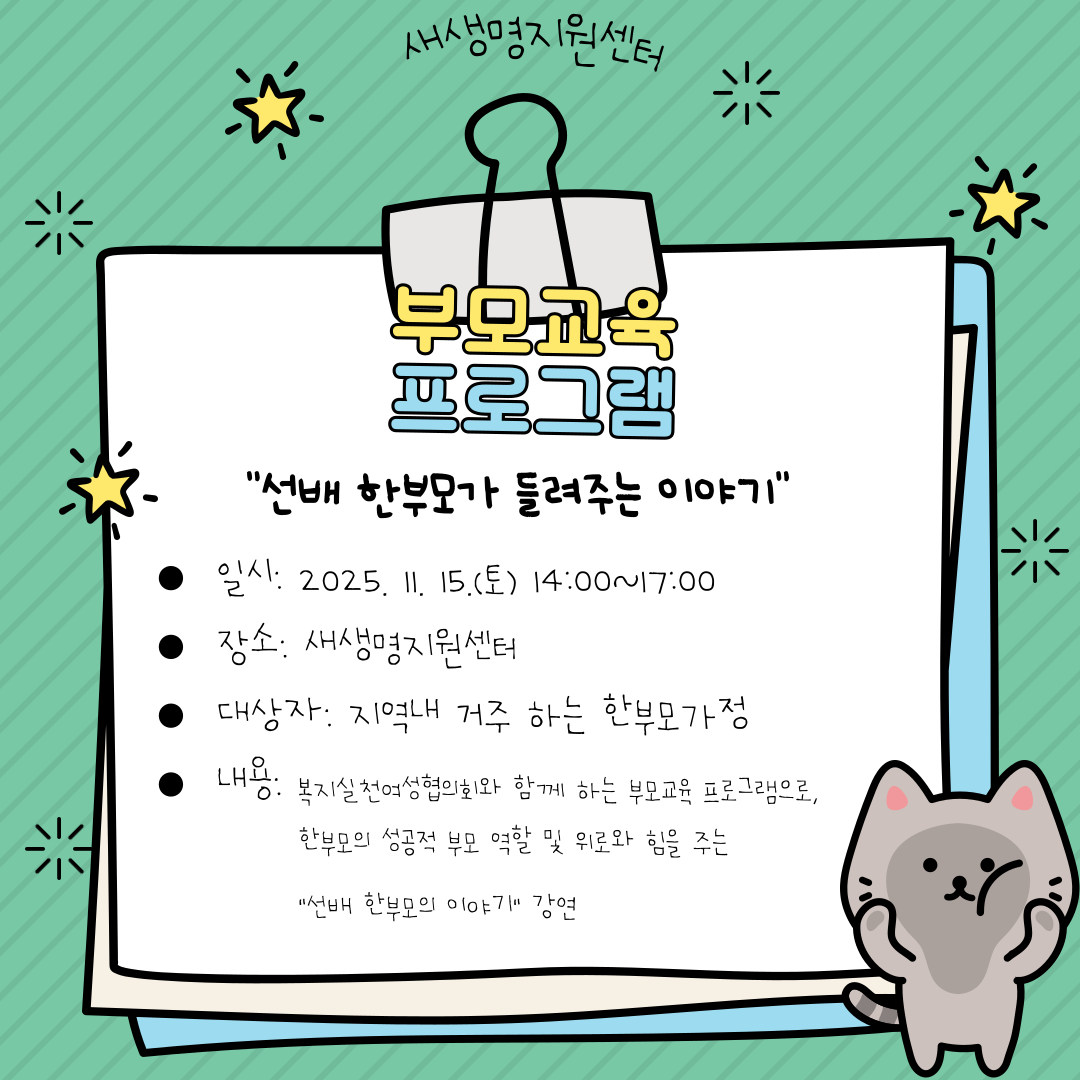 새생명지원센터
부모교육
프로그램
"선배 한부모가 들려주는 이야기"
● 일시: 2025. 11. 15.(토) 14:00~17:00
● 장소: 새생명지원센터
● 대상자: 지역내 거주 하는 한부모가정
● 내용: 복지실천여성협의회와 함께 하는 부모교육 프로그램으로,
한부모의 성공적 부모 역할 및 위로와 힘을 주는
"선배 한부모의 이야기" 강연